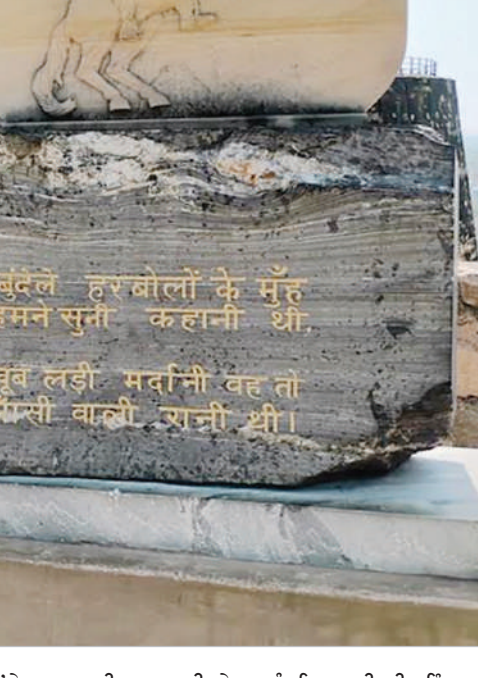 बुंदेले हरबोलों के मुँह
हमने सुनी कहानी थी,
खूब लड़ी मर्दानी वह तो
झाँसी वाली रानी थी।